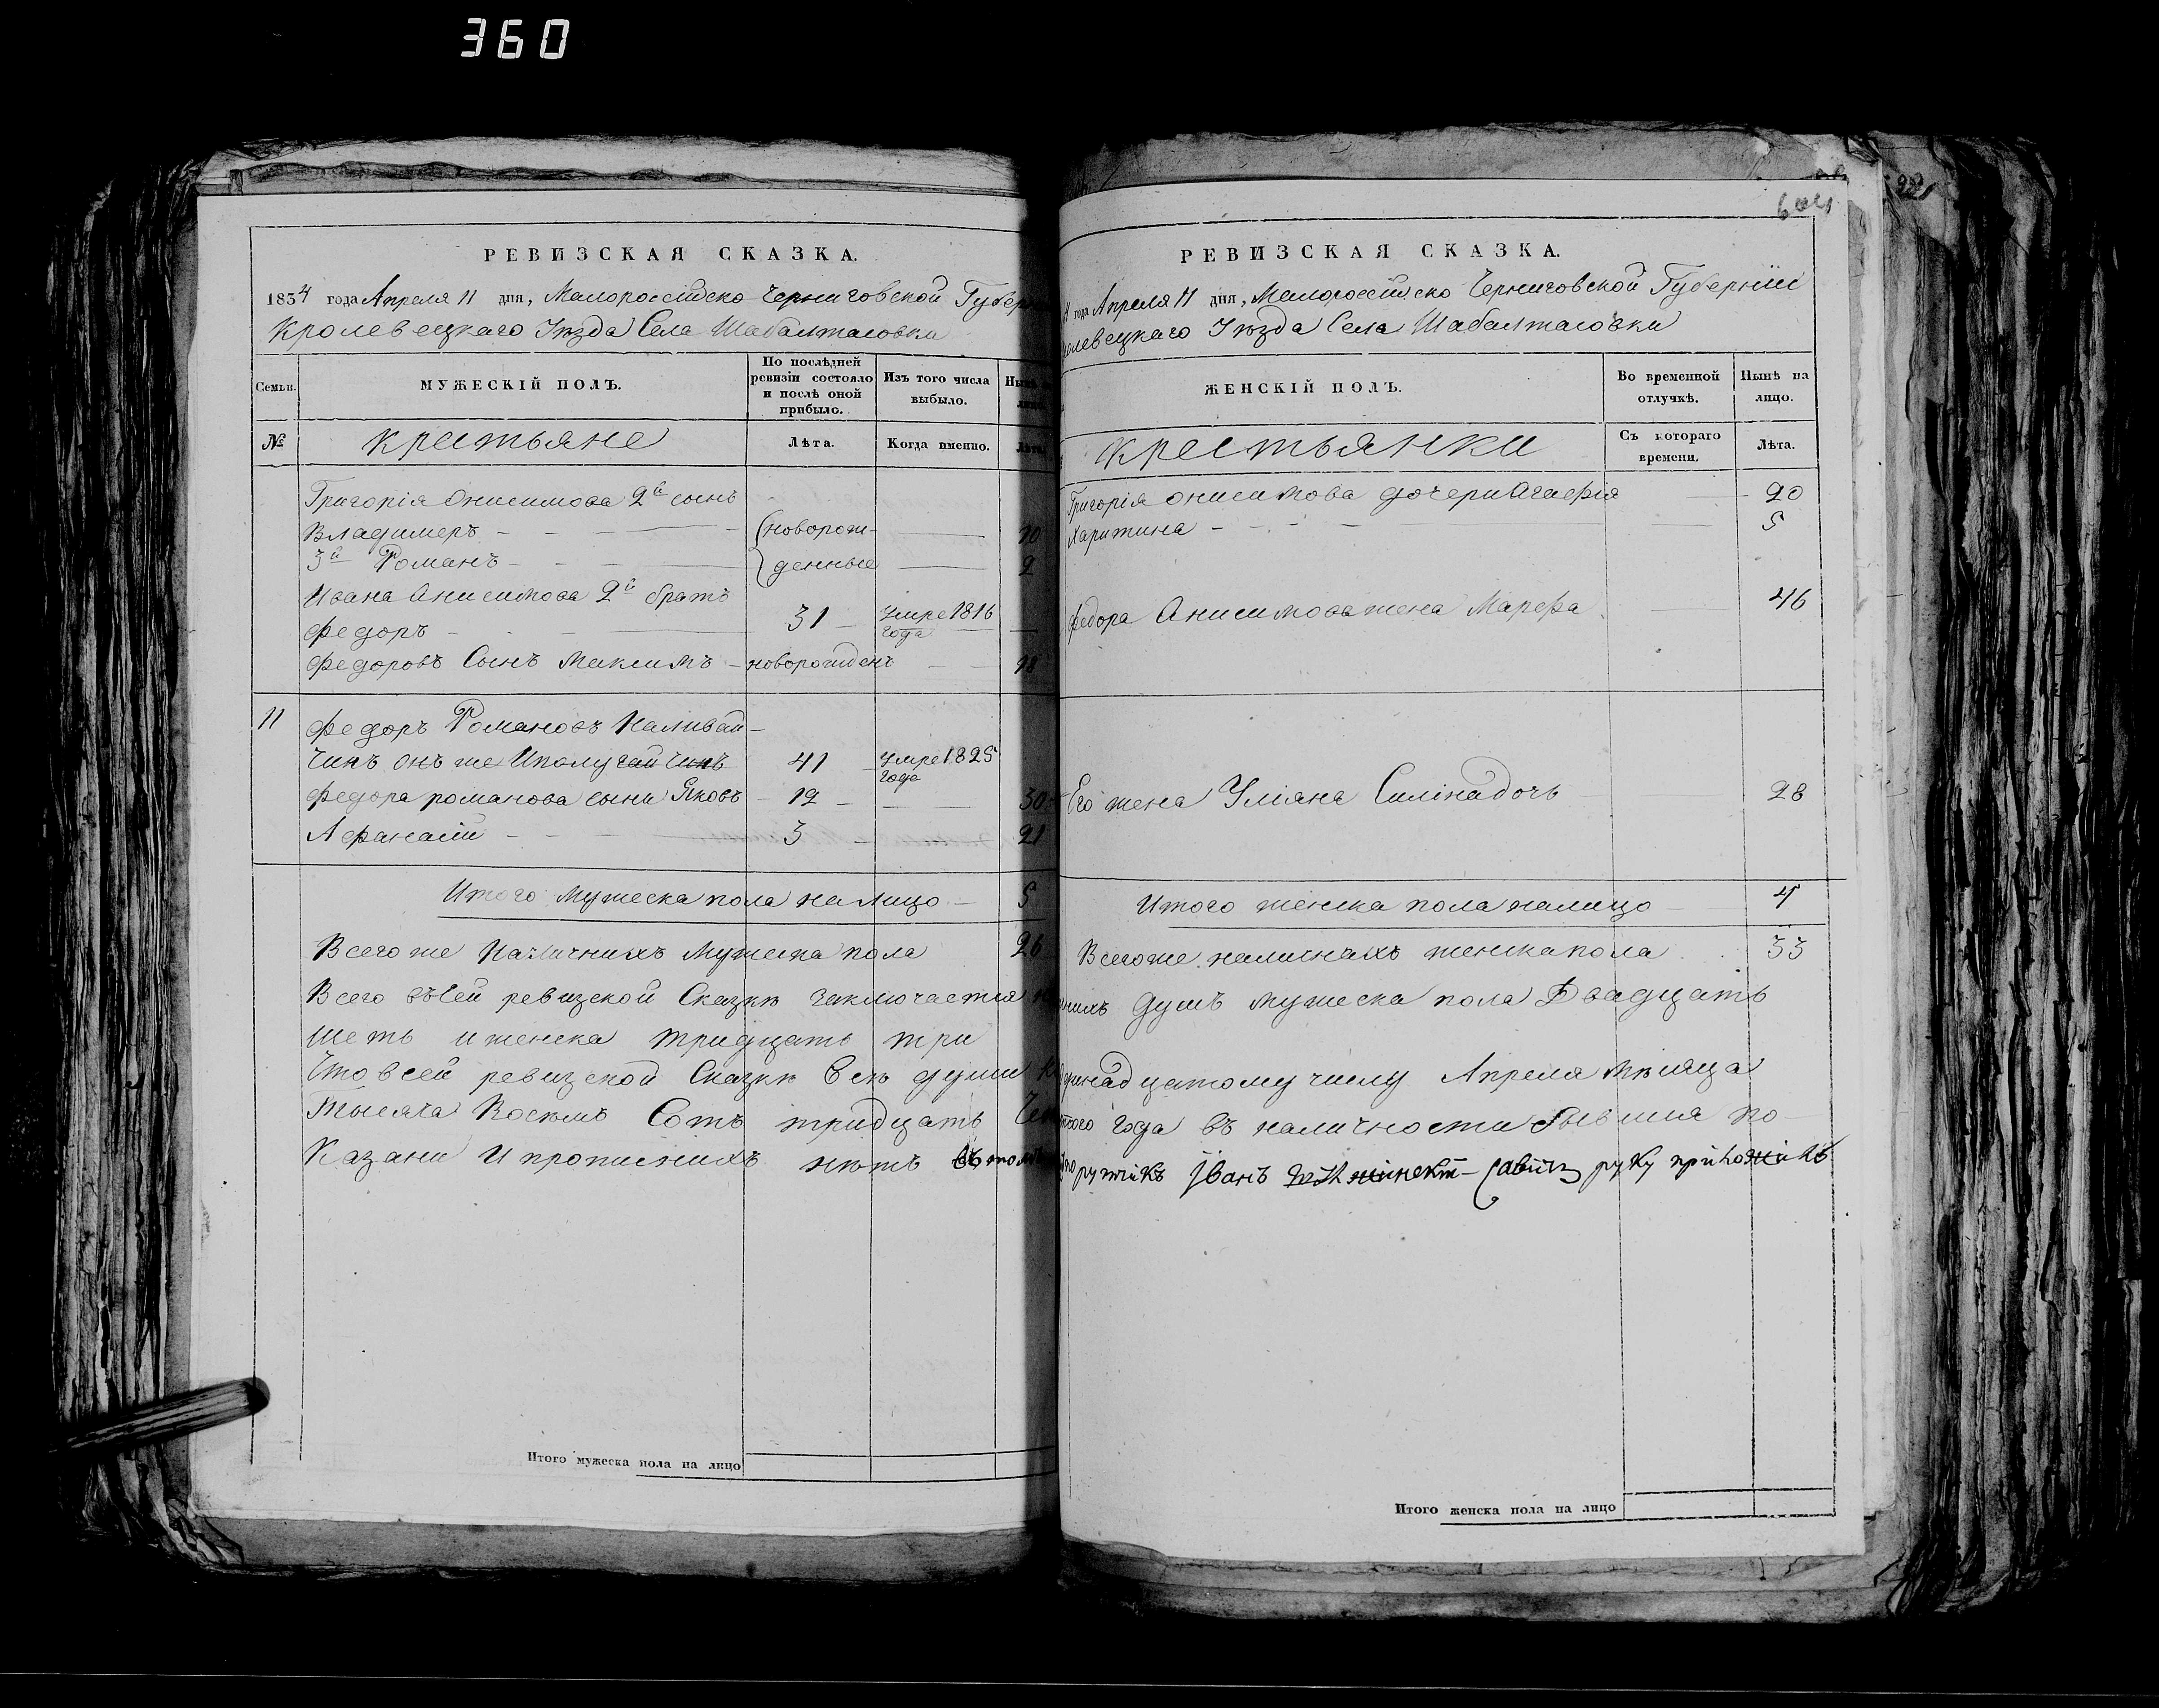 360
РЕВИЗСКАЯ СКАЗКА.
1834 года Апреля 11 дня, Малороссійско Черниговской Губер
Кролевецкаго Уезда Села Шабалтасовки
Семьи.
МУЖЕСКІЙ ПОЛЪ.
По послѣдней ревизіи состояло и послѣ оной прибыло.
Изъ того числа выбыло.
№
крестьяне
Лѣта.
Когда именно.
Григорія Онисимова 2й сынъ
Владимеръ (новорож- 10
3й Романъ денные 2
Ивана Анисимова 2й братъ
Федоръ 31 умре 1816 года
Федоровъ Сынъ Максимъ новорожденъ 18
11 Федоръ Романовъ Наливай-
чинъ онъ же 41 умре 1825 года
Федора романова сыни Яковъ 12 30
Афанасій 3 21
Итого мужеска пола на лицо 5
Всего же Наличнихъ Мужеска пола 26
Всего въ сей ревизской Сказкѣ заключается
шеть и женска тридцать три
Что в сей ревизской Сказкѣ всѣ души
Тысяча Восемъ Сотъ тридцать
Казани И прописнихъ нѣтъ въ том
Итого мужеска пола на лицо
604
РЕВИЗСКАЯ СКАЗКА.
года Апреля 11 дня, Малороссійско Черниговской Губерніи
олевецкаго Уезда Села Шабалтасовки
ЖЕНСКІЙ ПОЛЪ.
Во временной отлучкѣ.
Нынѣ на лицо.
крестьянки
Съ котораго времени.
Лѣта.
Григорія Онисимова дочери Агафія 20
Харитина 5
Федора Анисимова жена Марфа 46
Его жена Уліяна Силінадочь 28
Итого женска пола налицо 4
Всего же наличнихъ женска пола 33
нихъ душъ мужеска пола Двадцать
динадцатому числу Апреля мѣсяца
того года въ наличности бывшия по-
ручікъ Іванъ руку
Итого женска пола на лицо